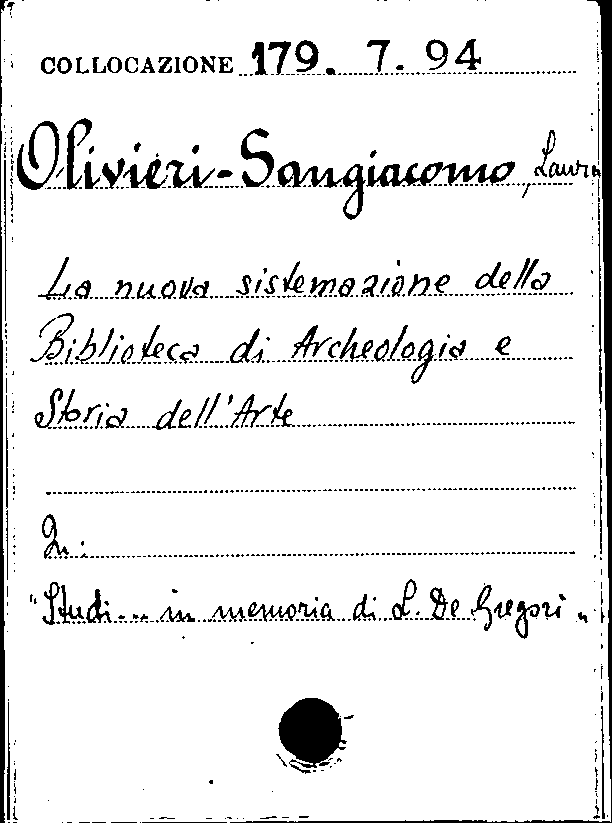 COLLOCAZIONE 179. 7. 94
Olivieri-Sangiacomo, Laura
La nuova sistemazione della
Biblioteca di Archeologia e
Storia dell'Arte
In:
"Studi... in memoria di L. De Gregori"